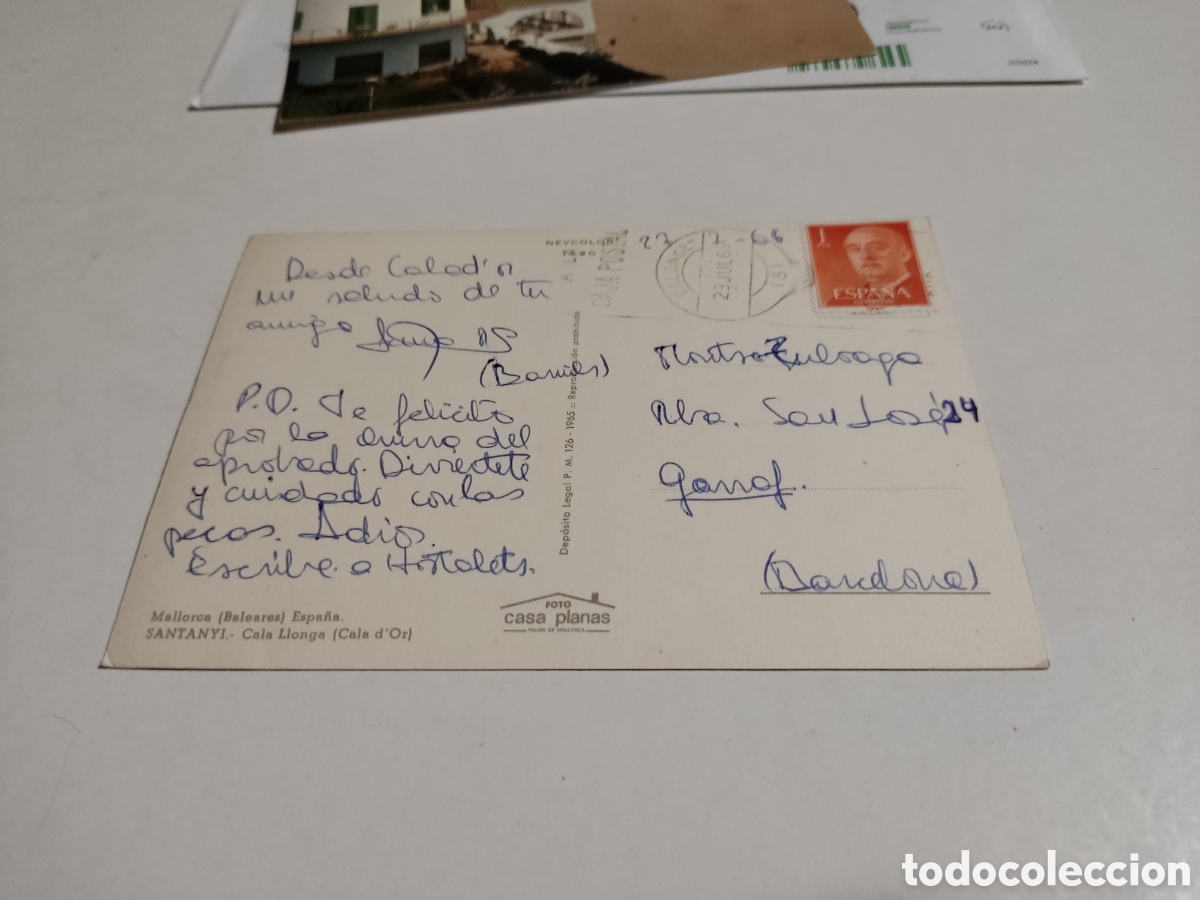 NEVCOLOR
27 7 66
CAJA POSTAL
CALONGE
23 JUL 6
(BALEARES)
1
ESPAÑA
CORREOS
Desde Calad'or
un saludo de tu
amigo
(Barnils)
P.D. Te felicito
por la quinra del
aprobado. Diviertete
y cuidado con las
pecas. Adios.
Escribe a Hostalets.
Depósito Legal P. M. 126 - 1965 :: Reproducción prohibida
Montse Zuloaga
Rbla. San José 24
Garraf.
(Barcelona)
Mallorca (Baleares) España.
SANTANYI.- Cala Llonga (Cala d'Or)
FOTO
casa planas
PALMA DE MALLORCA
todocoleccion